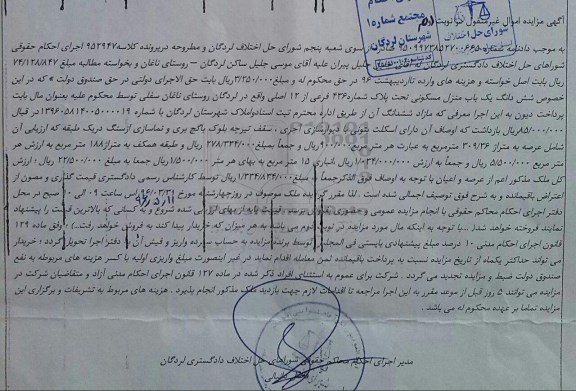 آگهی مزایده اموال غیرمنقول دو نوبت
مجتمع شماره ۱
شهرستان لردگان
شورای حل اختلاف
به موجب دادنامه شماره شعبه پنجم شورای حل اختلاف لردگان و مطروحه در پرونده کلاسه ۹۵۲۹۴۷ اجرای احکام حقوقی
شوراهای حل اختلاف دادگستری لردگان جلیل پیران علیه آقای موسی جلیل ساکن لردگان – روستای ناغان و بخواسته مطالبه مبلغ ۷۴/۱۲۸/۸۴۷
ریال بابت اصل خواسته و هزینه های وارده تا اردیبهشت ۹۶ در حق محکوم له و مبلغ ۳/۲۵۰/۰۰۰ ریال بابت حق الاجرای دولتی در حق صندوق دولت » که در این
خصوص شش دانگ یک باب منزل مسکونی تحت پلاک شماره ۴۳۶ فرعی از ۱۲ اصلی واقع در لردگان روستای ناغان سفلی توسط محکوم علیه بعنوان مال بابت
پرداخت دیون به این اجرا معرفی که مازاد ششدانگ آن از طریق اداره محترم ثبت اسناد و املاک شهرستان لردگان با شماره در قبال
ریال بازداشت که اوصاف آن دارای اسکلت دیوارسازی آجری ، سقف تیرچه بلوک باکچ بری و نماسازی ازسنگ دریک طبقه که ارزیابی آن
شامل عرصه به متراژ ۳۰۹/۳۶ مترمربع به عبارت هر متر مربع ریال و جمعاً بمبلغ ۲۷۸/۴۲۴/۰۰۰ ریال و طبقه همکف به متراژ ۱۸۸ متر مربع به ارزش هر
متر مربع ۵/۵۰۰/۰۰۰ ریال و جمعاً به ارزش ۱/۰۳۴/۰۰۰/۰۰۰ ریال انباری ۱۵ متر مربع به بهای هر متر ۱/۵۰۰/۰۰۰ ریال جمعا به مبلغ ۲۲/۵۰۰/۰۰۰ ریال ؛ ارزش
کل ملک مذکور اعم از عرصه و اعیان با توجه به اوصاف فوق الذکر جمعاً مبلغ ریال توسط کارشناس رسمی دادگستری قیمت گذاری و مصون از
اعتراض باقیمانده و به شرح فوق توصیف اجمالی شده است . لذا مقرر گردیده ملک موصوف در روز چهارشنبه مورخ ۹۶/۰۳/۳۱ راس ساعت ۰۹ الی ۱۰ صبح در محل
۹۶/۵/۱۱
دفتر اجرای احکام محاکم حقوقی با انجام مزایده عمومی و حضوری بفروش برسد. قیمت پایه از بهای ارزیابی شده شروع و به کسانی که بالاترین قیمت را پیشنهاد
نمایند، فروخته خواهد شد( ... با توجه به اینکه مال مورد مزایده در نوبت دوم می باشد به هر میزان که خریدار پیدا کند به فروش خواهد رفت...) . وفق ماده ۱۲۹
قانون اجرای احکام مدنی ۱۰ درصد مبلغ پیشنهادی بایستی فی المجلس توسط برنده مزایده به حساب سپرده واریز و فیش آن به دفتر اجرا تحویل گردد ، خریدار
می تواند حداکثر یکماه از تاریخ مزایده نسبت به پرداخت باقیمانده ثمن معامله اقدام نماید در غیر اینصورت مبلغ واریزی اولیه با کسر هزینه های مربوطه به نفع
صندوق دولت ضبط و مزایده تجدید می گردد . شرکت برای عموم به استثنای افراد ذکر شده در ماده ۱۲۷ قانون اجرای احکام مدنی آزاد و متقاضیان شرکت در
مزایده می توانند ۵ روز قبل از موعد مقرر به این اجرا مراجعه تا اقدامات لازم جهت بازدید ملک مذکور انجام پذیرد . هزینه های مربوط به تشریفات و برگزاری این
مزایده تماما بر عهده محکوم له می باشد .
مدیر اجرای احکام محاکم حقوقی شوراهای حل اختلاف دادگستری لردگان